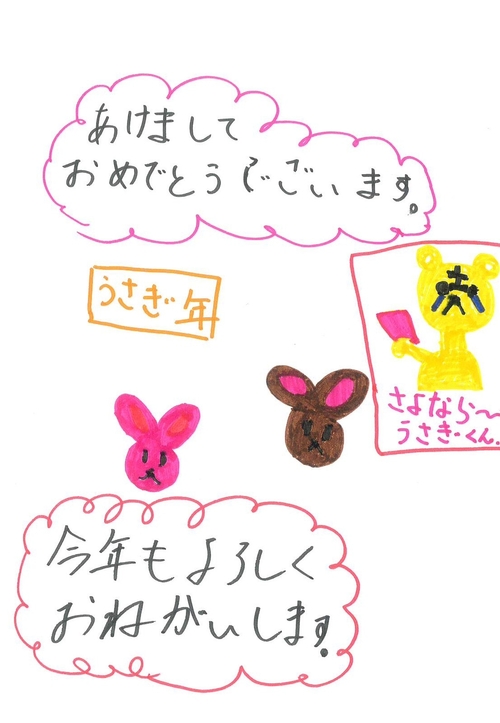 あけまして
おめでとうございます。
うさぎ年
さよなら〜
うさぎくん.
今年もよろしく
おねがいします.